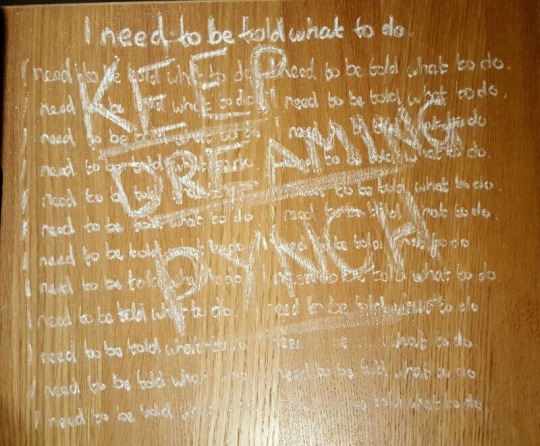 I need to be told what to do.
I need to be told what to do I need to be told what to do.
I need to be told what to do I need to be told what to do.
I need to be told what to do I need to be told what to do
I need to be told what to do.
I need to be told what to do.
I need to be told what to do I need to be told what to do.
I need to be told I need to be told what to do
I need to be told I need to be told what to do
I need to be told what to do. I need to be told what to do
I need to be told what to need what to do
I need to be told what need to be told what to do
I need to be told what to be told what to do.
KEEP
DREAMING
PYNCH